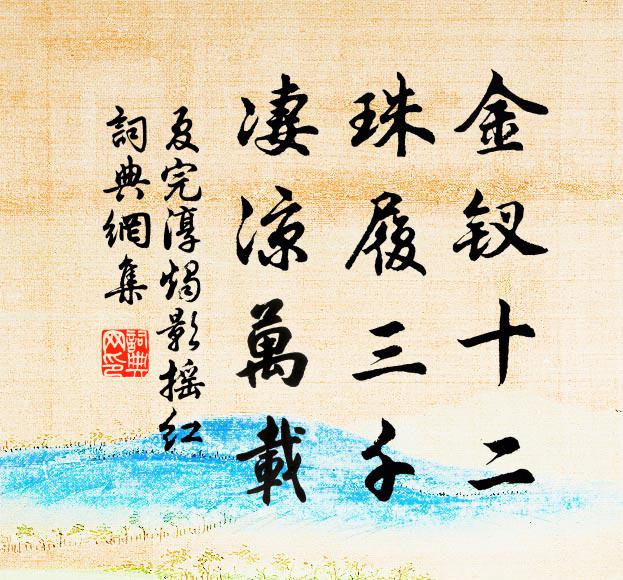 金钗十二
珠履三千
凄涼萬載
夏完淳燭影摇红
詞典網集
詞典网印